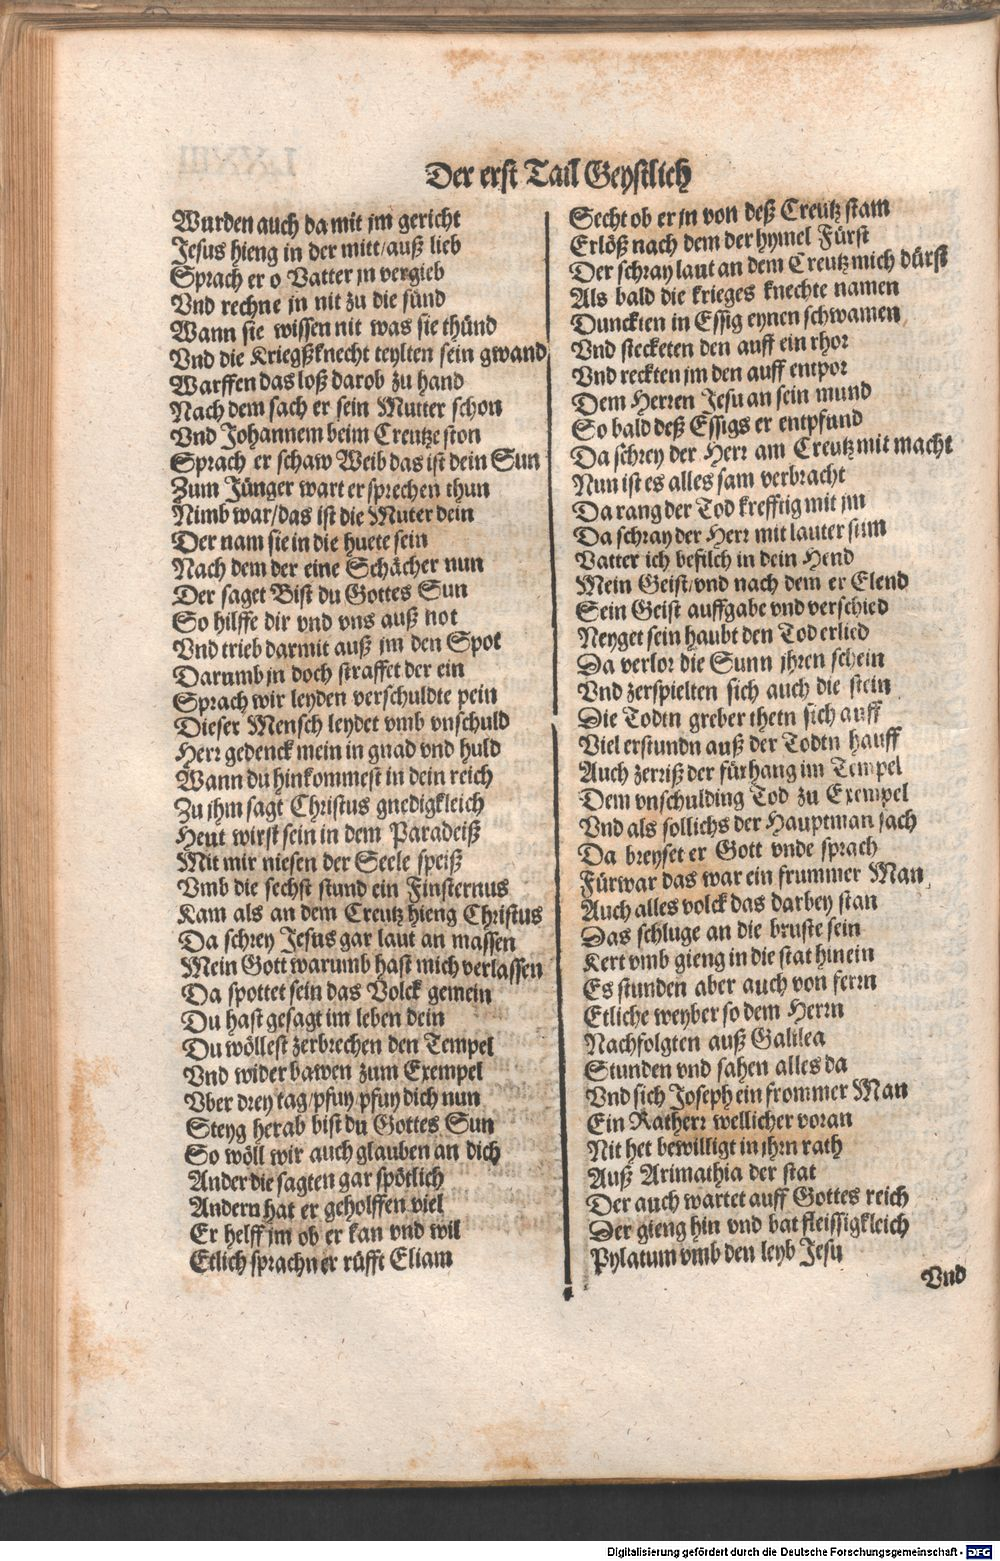 Der erst Tail Geystlich
Wurden auch da mit jm gericht
Jesus hieng in der mitt/auß lieb
Sprach er o Vatter jn vergieb
Vnd rechne jn nit zu die sünd
Wann sie wissen nit was sie thünd
Vnd die Kriegßknecht teylten sein gwand
Warffen das loß darob zu hand
Nach dem sach er sein Mutter schon
Vnd Johannem beim Creutze ston
Sprach er schaw Weib das ist dein Sun
Zum Jünger wart er sprechen thun
Nimb war/das ist die Muter dein
Der nam sie in die huete sein
Nach dem der eine Schächer nun
Der saget Bist du Gottes Sun
So hilffe dir vnd vns auß not
Vnd trieb darmit auß jm den Spot
Darumb jn doch straffet der ein
Sprach wir leyden verschuldte pein
Dieser Mensch leydet vmb vnschuld
Herr gedenck mein in gnad vnd huld
Wann du hinkommest in dein reich
Zu jhm sagt Christus gnedigkleich
Heut wirst sein in dem Paradeiß
Mit mir niesen der Seele speiß
Vmb die sechst stund ein Finsternus
Kam als an dem Creutz hieng Christus
Da schrey Jesus gar laut an massen
Mein Gott warumb hast mich verlassen
Da spottet sein das Volck gemein
Du hast gesagt im leben dein
Du wöllest zerbrechen den Tempel
Vnd wider bawen zum Exempel
Vber drey tag/pfuy/pfuy dich nun
Steyg herab bist du Gottes Sun
So wöll wir auch glauben an dich
Ander die sagten gar spötlich
Andern hat er geholffen viel
Er helff jm ob er kan vnd wil
Etlich sprachn er rüfft Eliam
Secht ob er jn von deß Creutz stam
Erlöß nach dem der hymel Fürst
Der schray laut an dem Creutz mich dürst
Als bald die krieges knechte namen
Dunckten in Essig eynen schwamen
Vnd stecketen den auff ein rhor
Vnd reckten jm den auff entpor
Dem Herren Jesu an sein mund
So bald deß Essigs er entpfund
Da schrey der Herr am Creutz mit macht
Nun ist es alles sam verbracht
Da rang der Tod krefftig mit jm
Da schray der Herr mit lauter stim
Vatter ich befilch in dein Hend
Mein Geist/vnd nach dem er Elend
Sein Geist auffgabe vnd verschied
Neyget sein haubt den Tod erlied
Da verlor die Sunn jhren schein
Vnd zerspielten sich auch die stein
Die Todtn greber thetn sich auff
Viel erstundn auß der Todtn hauff
Auch zerriß der fürhang im Tempel
Dem vnschulding Tod zu Exempel
Vnd als sollichs der Hauptman sach
Da breyset er Gott vnde sprach
Fürwar das war ein frummer Man
Auch alles volck das darbey stan
Das schluge an die bruste sein
Kert vmb gieng in die stat hinein
Es stunden aber auch von ferrn
Etliche weyber so dem Herrn
Nachfolgten auß Galilea
Stunden vnd sahen alles da
Vnd sich Joseph ein frommer Man
Ein Ratherr wellicher voran
Nit het bewilligt in jhrn rath
Auß Arimathia der stat
Der auch wartet auff Gottes reich
Der gieng hin vnd bat fleissigkleich
Pylatum vmb den leyb Jesu
Vnd
Digitalisierung gefördert durch die Deutsche Forschungsgemeinschaft - DFG